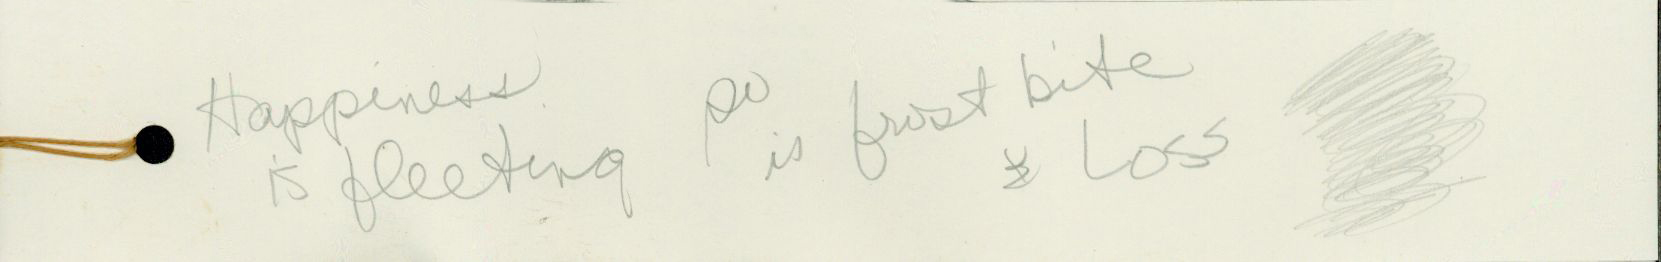 Happiness
is fleeting
so
is frost bite
& Loss